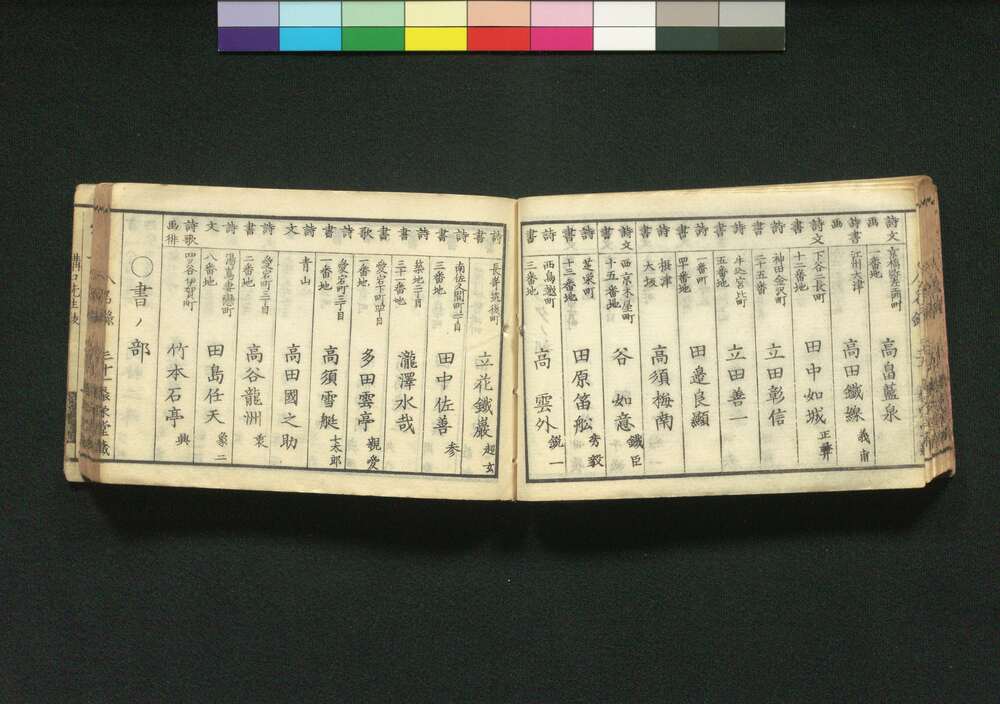 詩文画
一番地
高畠藍泉
詩書画
江州大津
高田鐵線
義甫
詩文書
下谷二長町
十二番地
田中如城
正彝
詩書
神田金沢町
二十五番
立田彰信
詩書
牛込宮比町
五番地
立田善一
詩書
一番町
四番地
田邉良顯
詩書
摂津
大坂
高須梅南
詩文書
西京木屋町
十五番地
谷如意
鐵臣
詩書
芝栄町
十三番地
田原笛舩
秀毅
詩書
西鳥越町
三番地
高雲外
鋭一
詩書
長者
筑後町
立花鐵巖
超玄
詩書
南佐久間町二丁目
三番地
田中佐善
参
詩書
築地二丁目
三十一番地
瀧澤水哉
書歌
愛宕下町四丁目
一番地
多田雲亭
親愛
詩書
愛宕町三丁目
一番地
高須雪艇
七太郎
詩文
青山
高田國之助
詩書
愛宕町二丁目
二番地
高谷龍洲
詩文
湯島妻戀町
八番地
田島任天
象二
詩歌画俳
四ツ谷伊賀町
竹本石亭
興
〇書ノ部
三十一